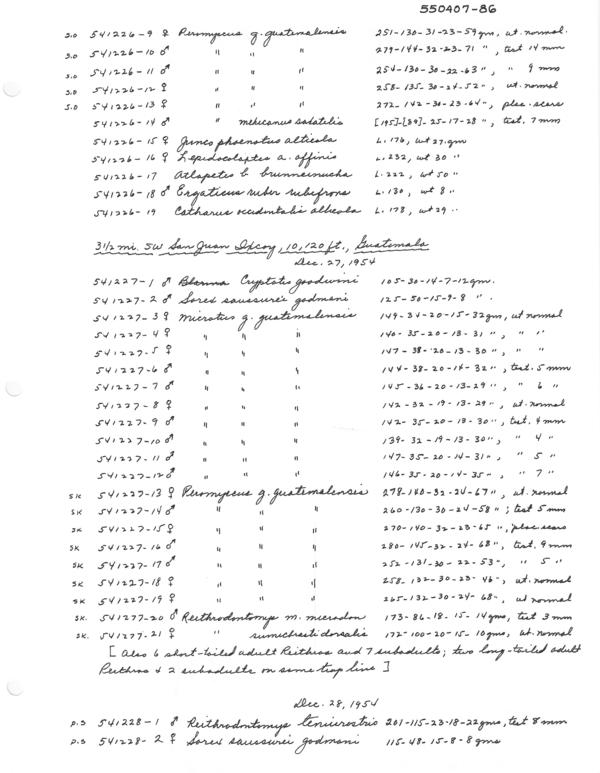 550407-86
S.O 541226-9 ♀ Peromyscus g. guatemalensis 251-130-31-23-59gm, ut. normal.
S.O 541226-10 ♂ " " " 279-144-32-23-71 ", test 14 mm
S.O 541226-11 ♂ " " " 254-130-30-22-63 ", " 9 mm
S.O 541226-12 ♀ " " " 258-135-30-24-52 ", ut. normal
S.O 541226-13 ♀ " " " 272-142-30-23-64 ", plac. scars
541226-14 ♂ " mexicanus saxatilis [195]-[89]-25-17-28 ", test. 7 mm
541226-15 ♀ Junco phaenotus alticola L. 176, wt 27. gm
541226-16 ♀ Lepidocolaptes a. affinis L. 232, wt 30 "
541226-17 Atlapetes b brunneinucha L. 222, wt 50 "
541226-18 ♂ Ergaticus ruber rubifrons L. 130, wt 8 "
541226-19 Catharus occidentalis albicola L. 178, wt 29 "
3 1/2 mi. SW San Juan Ixcoy, 10,120 ft., Guatemala
Dec. 27, 1954
541227-1 ♂ Cryptotis goodwini 105-30-14-7-12gm.
541227-2 ♂ Sorex saussurei godmani 125-50-15-9-8 " .
541227-3 ♀ Microtus g. guatemalensis 149-34-20-15-32gm, ut normal
541227-4 ♀ " " " 140-35-20-13-31 ", " "
541227-5 ♀ " " " 147-38-20-13-30 ", " "
541227-6 ♂ " " " 144-38-20-14-32 ", test. 5 mm
541227-7 ♂ " " " 145-36-20-13-29 ", " 6 "
541227-8 ♀ " " " 142-32-19-13-29 ", ut. normal
541227-9 ♂ " " " 142-35-20-13-30 ", test. 4 mm
541227-10 ♂ " " " 139-32-19-13-30 ", " 4 "
541227-11 ♂ " " " 147-35-20-14-31 ", " 5 "
541227-12 ♂ " " " 146-35-20-14-35 ", " 7 "
SK 541227-13 ♀ Peromyscus g. guatemalensis 278-140-32-24-67 ", ut. normal
SK 541227-14 ♂ " " " 260-130-30-24-58 "; test 5 mm
SK 541227-15 ♀ " " " 270-140-32-23-65 ", plac scars
SK 541227-16 ♂ " " " 280-145-32-24-68 ", test. 9 mm
SK 541227-17 ♂ " " " 252-131-30-22-53 ", " 5 "
SK 541227-18 ♀ " " " 258-132-30-23-46 ", ut. normal
SK 541227-19 ♀ " " " 265-132-30-24-68 ", ut normal
SK. 541277-20 ♂ Reithrodontomys m. microdon 173-86-18-15-14gms, test 3 mm
SK. 541277-21 ♀ " sumichrasti dorsalis 172-100-20-15-10gms, ut. normal
[ Also 6 short-tailed adult Reithros and 7 subadults; two long-tailed adult
Reithros & 2 subadults on same trap line ]
Dec. 28, 1954
P.S 541228-1 ♂ Reithrodontomys tenuirostris 201-115-23-18-22gms, test 8 mm
P.S 541228-2 ♀ Sorex saussurei godmani 115-48-15-8-8 gms